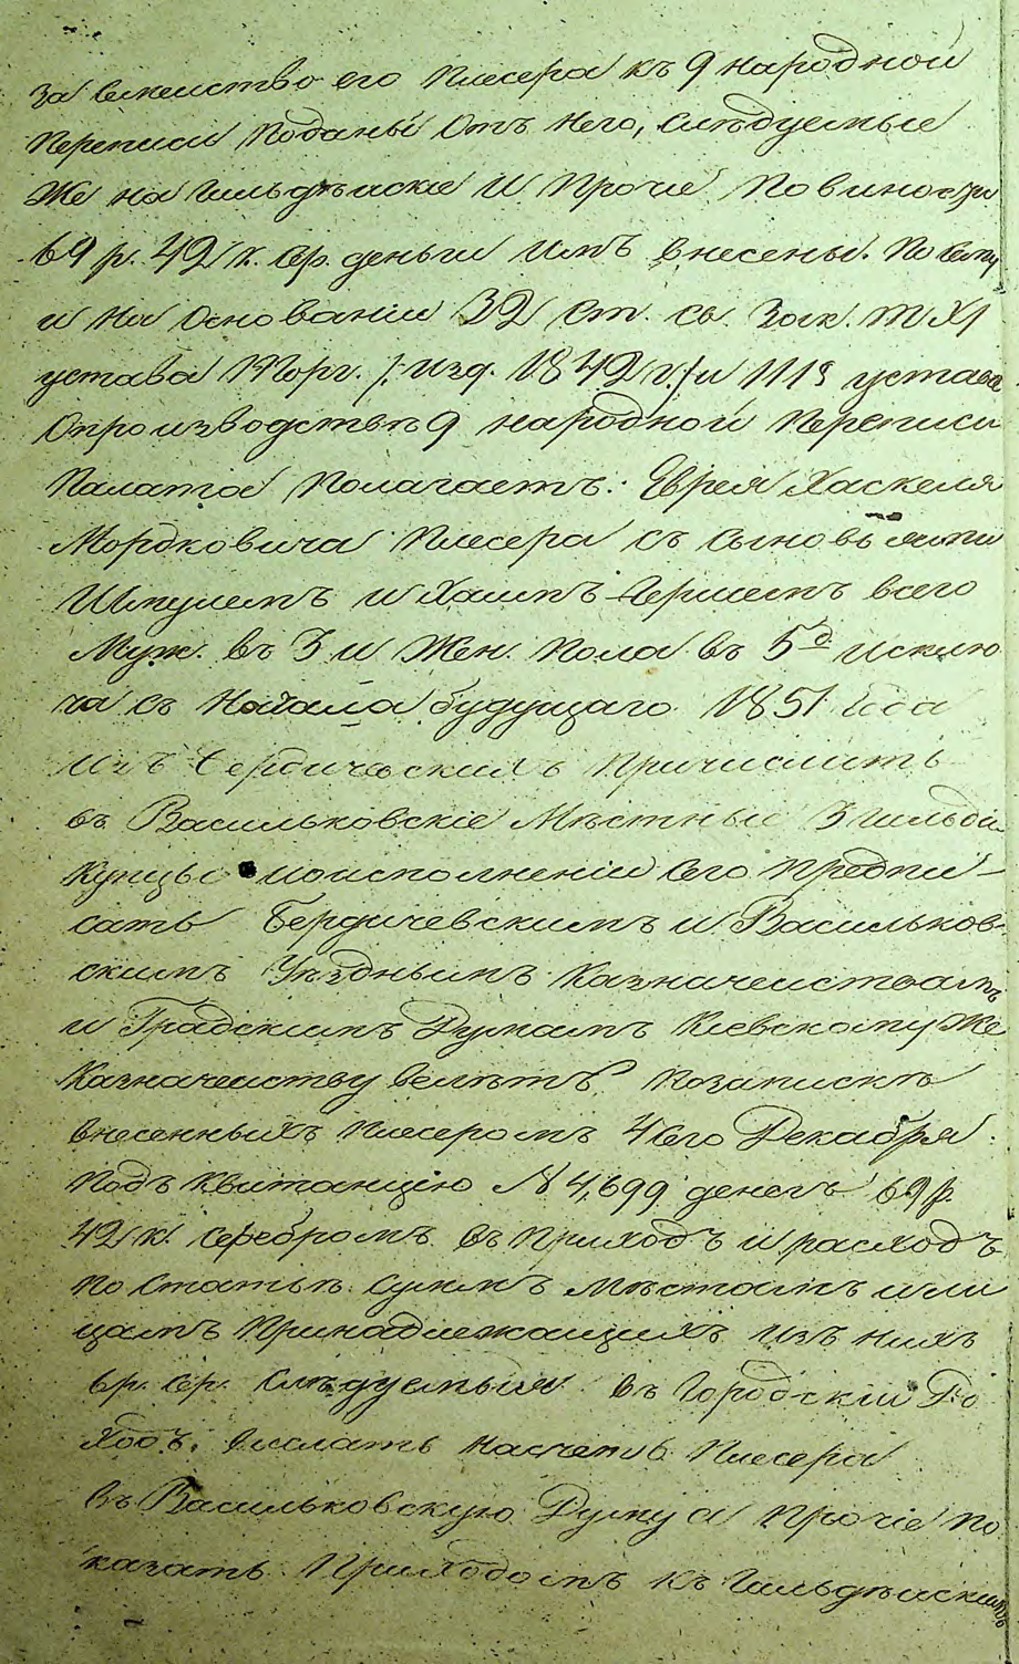 за семейство его Плесера къ 9 народной
переписи поданы отъ него, слѣдуемые
же на гильдѣйскіе и прочіе повиности
69 р. 42 к. сер. деньги имъ внесены. По сему
и на основаніи 32 ст. св. Зак. т XI
устава Торг. /: изд. 1842 г:/ и 111 § устава
о производствѣ 9 народной переписи
Палата полагаетъ: Еврея Хаскеля
Мордковича Плесера съ сыновьями
Шмулемъ и Хаимъ-Гершемъ всего
муж. въ 3 и жен. пола въ 5 д исклю
ча съ начала будущаго 1851 года
изъ Бердичевскихъ причислить
въ Васильковскіе мѣстные 3 гильдіи
купцы о исполненіи сего предпи-
сать Бердичевскимъ и Васильков-
скимъ Уѣзднымъ Казначействамъ
и Градскимъ Думамъ Кіевскому же
Казначейству велѣть по запискѣ
внесенныхъ Плесеромъ 4 сего Декабря
подъ квитанцію N 4,699 денегъ 69 р
42 к. серебромъ въ приходъ и расходъ
по статьѣ суммъ мѣстамъ и ли
цамъ принадлежащихъ изъ нихъ
6 р. сер. слѣдуемыя въ городскій до
ходъ, выслать насчетъ Плесера
въ Васильковскую Думу а прочіе по
казать приходомъ къ гильдѣйскимъ